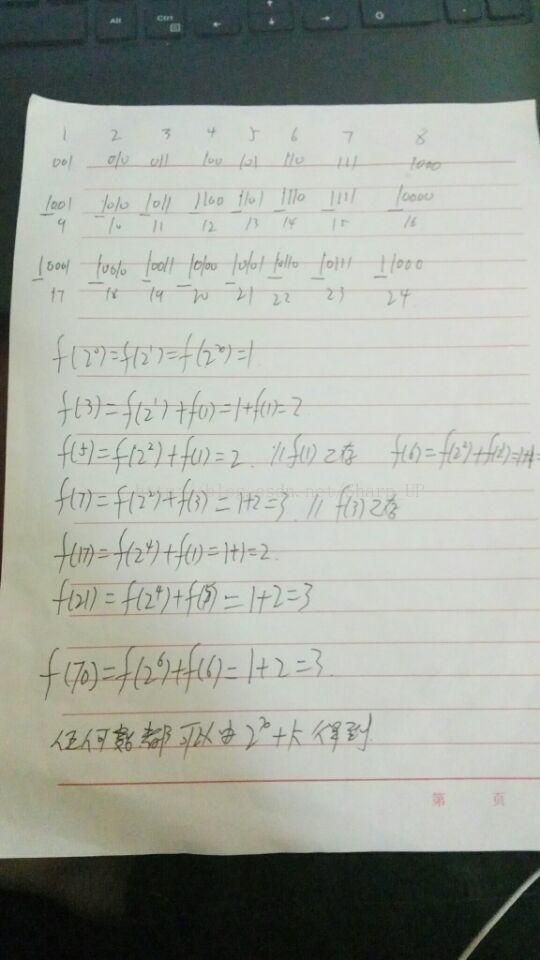 Alt Ctrl
1 2 3 4 5 6 7 8
001 010 011 100 101 110 111 1000
1001 1010 1011 1100 1101 1110 1111 10000
9 10 11 12 13 14 15 16
10001 10010 10011 10100 10101 10110 10111 11000
17 18 19 20 21 22 23 24
f(2⁰)=f(2¹)=f(2ˣ)=1
f(3)=f(2¹)+f(1)=1+f(1)=2
f(5)=f(2²)+f(1)=2. //f(1)已存 f(6)=f(2²)+f(2)=1+1=
f(7)=f(2²)+f(3)=1+2=3. // f(3)已存
f(17)=f(2⁴)+f(1)=1+1=2.
f(21)=f(2⁴)+f(5)=1+2=3
f(70)=f(2⁶)+f(6)=1+2=3.
任何数都可以由2ˣ+k得到
第 页